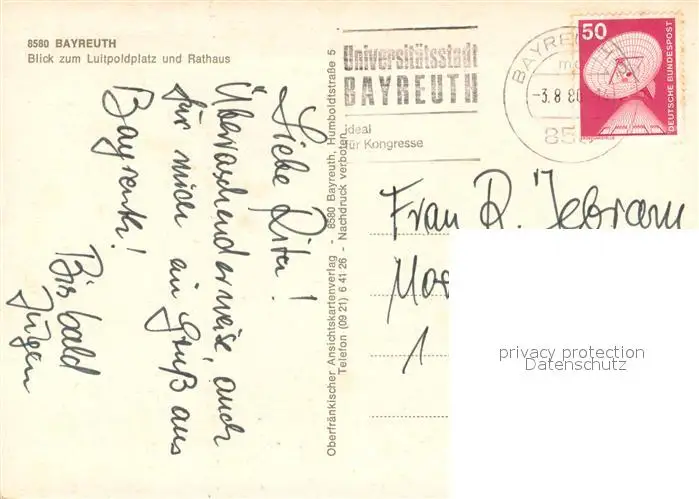 8580 BAYREUTH
Blick zum Luitpoldplatz und Rathaus
Liebe Rita!
Überraschenderweise, auch
für mich ein Gruß aus
Bayreuth!
Bis bald
Jürgen
Oberfränkischer Ansichtskartenverlag - 8580 Bayreuth, Humboldtstraße 5
Telefon (09 21) 6 41 26 - Nachdruck verboten
Universitätsstadt
BAYREUTH
ideal
für Kongresse
BAYREUTH
-3.8.80
858
50
DEUTSCHE BUNDESPOST
Frau R. Jebram
1
privacy protection
Datenschutz